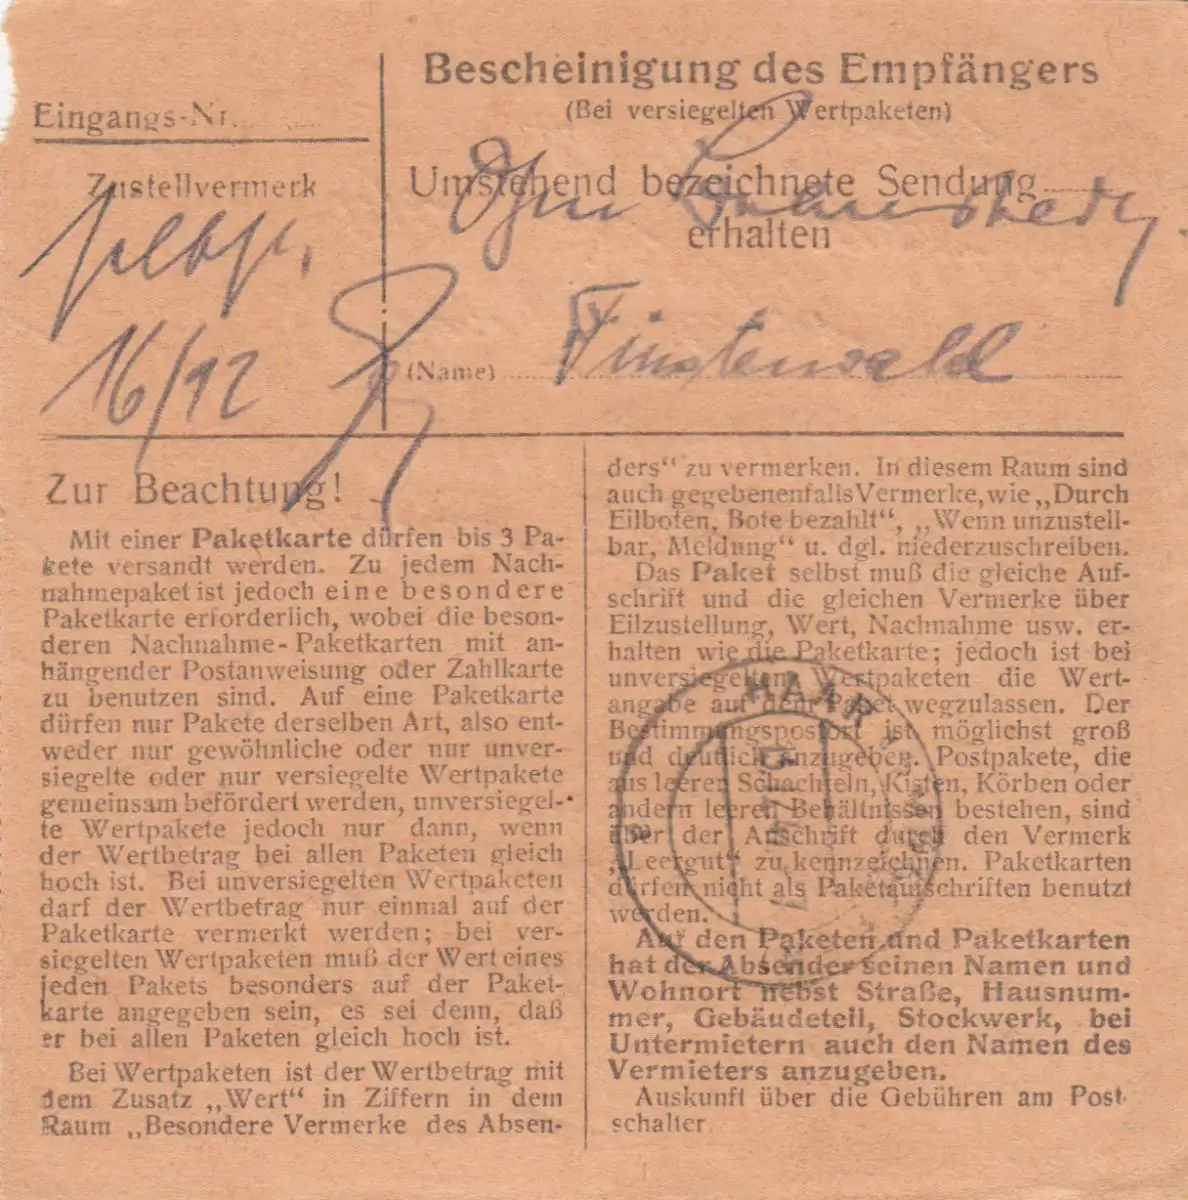 Eingangs-Nr.
Zustellvermerk
16/12
Bescheinigung des Empfängers
(Bei versiegelten Wertpaketen)
Umstehend bezeichnete Sendung
erhalten
(Name) Finstenwald
Zur Beachtung!
Mit einer Paketkarte dürfen bis 3 Pa-
kete versandt werden. Zu jedem Nach-
nahmepaket ist jedoch eine besondere
Paketkarte erforderlich, wobei die beson-
deren Nachnahme-Paketkarten mit an-
hängender Postanweisung oder Zahlkarte
zu benutzen sind. Auf eine Paketkarte
dürfen nur Pakete derselben Art, also ent-
weder nur gewöhnliche oder nur unver-
siegelte oder nur versiegelte Wertpakete
gemeinsam befördert werden, unversiegel-
te Wertpakete jedoch nur dann, wenn
der Wertbetrag bei allen Paketen gleich
hoch ist. Bei unversiegelten Wertpaketen
darf der Wertbetrag nur einmal auf der
Paketkarte vermerkt werden; bei ver-
siegelten Wertpaketen muß der Wert eines
jeden Pakets besonders auf der Paket-
karte angegeben sein, es sei denn, daß
er bei allen Paketen gleich hoch ist.
Bei Wertpaketen ist der Wertbetrag mit
dem Zusatz „Wert“ in Ziffern in dem
Raum „Besondere Vermerke des Absen-
ders“ zu vermerken. In diesem Raum sind
auch gegebenenfalls Vermerke, wie „Durch
Eilboten, Bote bezahlt“, „Wenn unzustell-
bar, Meldung“ u. dgl. niederzuschreiben.
Das Paket selbst muß die gleiche Auf-
schrift und die gleichen Vermerke über
Eilzustellung, Wert, Nachnahme usw. er-
halten wie die Paketkarte; jedoch ist bei
unversiegelten Wertpaketen die Wert-
angabe auf dem Paket wegzulassen. Der
Bestimmungspostort ist möglichst groß
und deutlich anzugeben. Postpakete, die
aus leeren Schachteln, Kisten, Körben oder
andern leeren Behältnissen bestehen, sind
über der Anschrift durch den Vermerk
„Leergut“ zu kennzeichnen. Paketkarten
dürfen nicht als Paketaufschriften benutzt
werden.
Auf den Paketen und Paketkarten
hat der Absender seinen Namen und
Wohnort nebst Straße, Hausnum-
mer, Gebäudeteil, Stockwerk, bei
Untermietern auch den Namen des
Vermieters anzugeben.
Auskunft über die Gebühren am Post-
schalter
HAAR